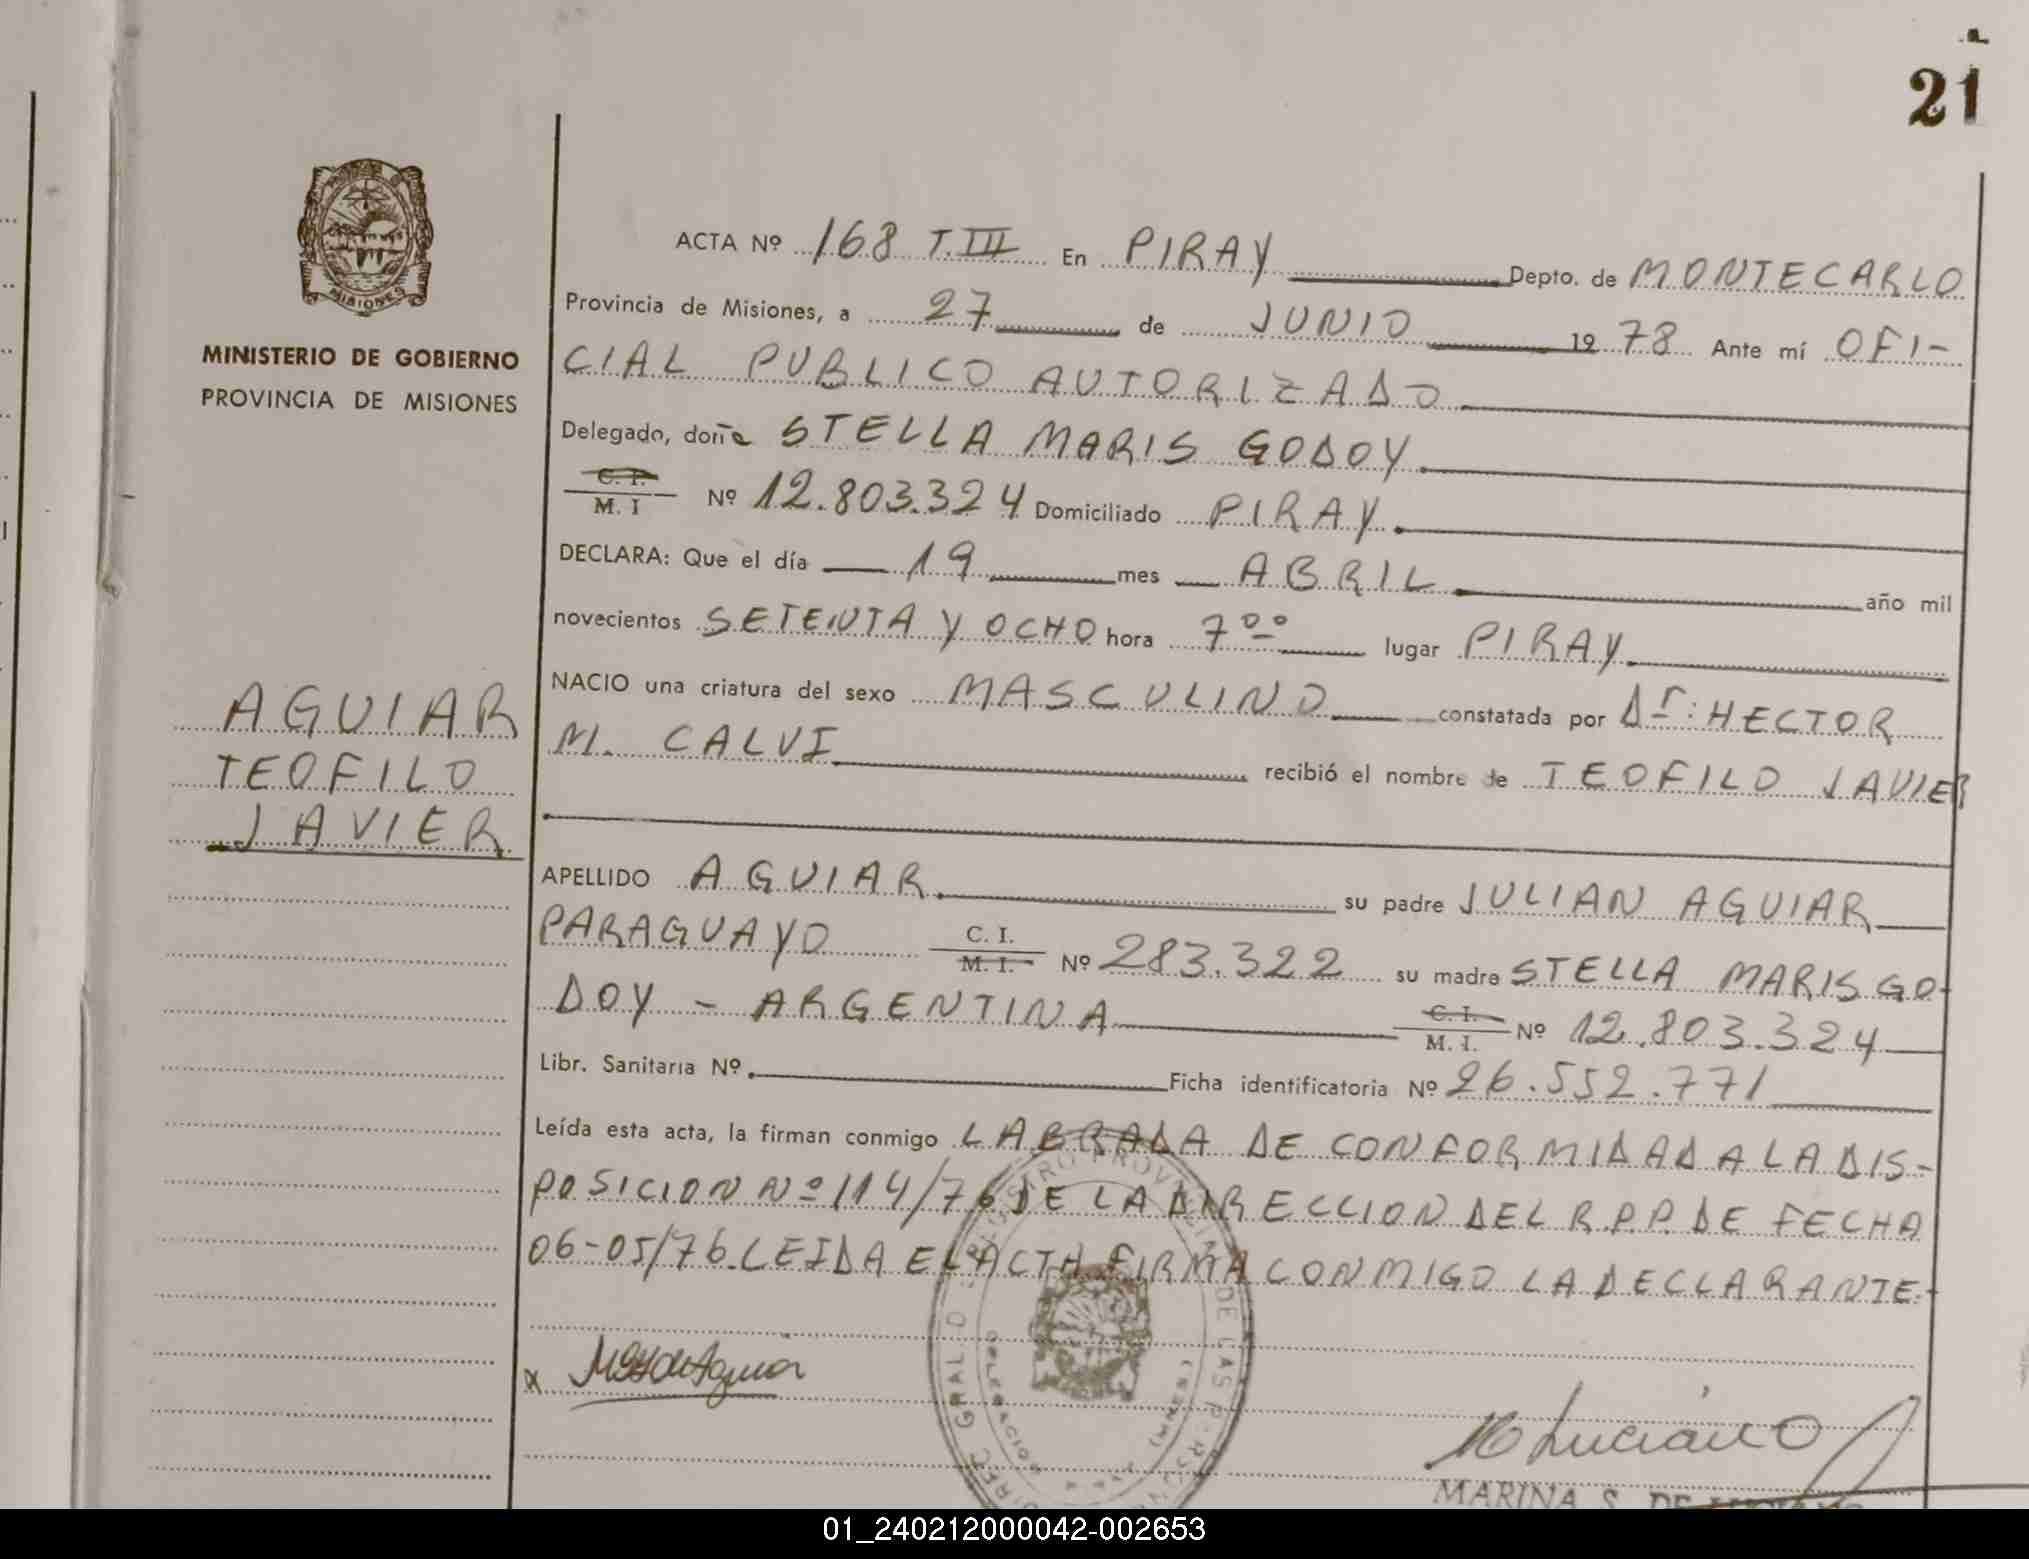 21
MISIONES
MINISTERIO DE GOBIERNO
PROVINCIA DE MISIONES
AGUIAR
TEOFILO
JAVIER
ACTA Nº 168 T.III En PIRAY Depto. de MONTECARLO
Provincia de Misiones, a 27 de JUNIO 1978 Ante mí OFI-
CIAL PUBLICO AUTORIZADO
Delegado, doña STELLA MARIS GODOY
C. I. M. I Nº 12.803.324 Domiciliado PIRAY
DECLARA: Que el día 19 mes ABRIL año mil
novecientos SETENTA Y OCHO hora 7⁰⁰ lugar PIRAY
NACIO una criatura del sexo MASCULINO constatada por Dr: HECTOR
M. CALVI recibió el nombre de TEOFILO JAVIER
APELLIDO AGUIAR su padre JULIAN AGUIAR
PARAGUAYO C. I. M. I. Nº 283.322 su madre STELLA MARIS GO-
DOY - ARGENTINA C. I. M. I. Nº 12.803.324
Libr. Sanitaria Nº Ficha identificatoria Nº 26.552.771
Leída esta acta, la firman conmigo LABRADA DE CONFORMIDAD A LA DIS-
POSICION Nº 114/76 DE LA DIRECCION DEL R.P.P. DE FECHA
06-05/76. LEIDA EL ACTA FIRMA CONMIGO LA DECLARANTE.-
x
Luciano
MARINA S. DE
01_240212000042-002653